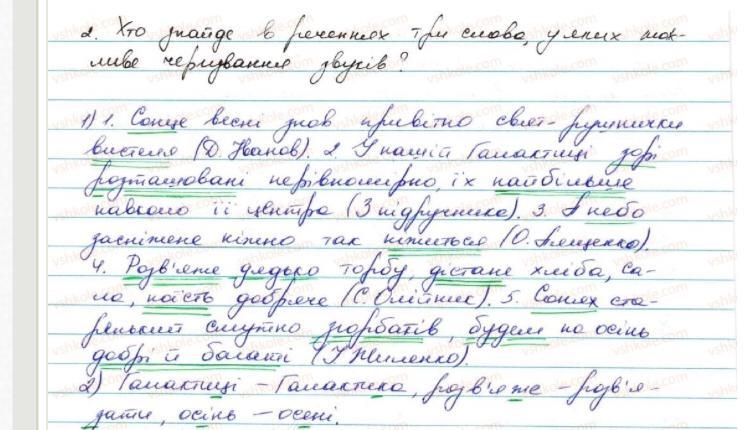 2. Хто знайде в реченнях три слова, у яких мож-
ливе чергування звуків?
1) 1. Сонце весні знов привітно свят-рушнички
вистеля (Д. Іванов). 2. У нашій Галактиці зорі
розташовані нерівномірно, їх найбільше
навколо її центра (З підручника). 3. А небо
засніжене ніжно так ніжиться (О. Лященко).
4. Розв'яже дядько торбу, дістане хліба, са-
ла, поїсть добряче (С. Олійник). 5. Сонях ста-
ренький смутно згорбатів, будем на осінь
добрі й багаті (І. Жиленко).
2) Галактиці – Галактика, розв'яже – розв'я-
зати, осінь – осені.